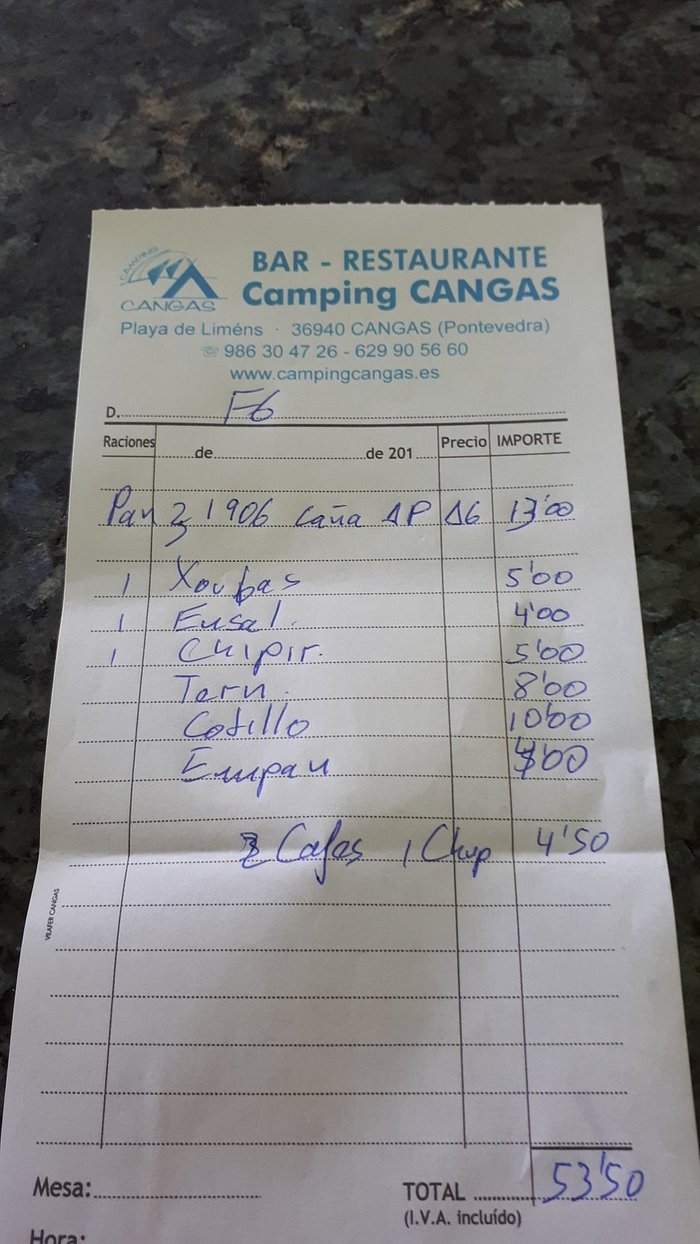 CAMPING
CANGAS
BAR - RESTAURANTE
Camping CANGAS
Playa de Liméns · 36940 CANGAS (Pontevedra)
☏ 986 30 47 26 - 629 90 56 60
www.campingcangas.es
D. F6
Raciones de de 201 Precio IMPORTE
Pan 3 1906 Caña 1P 13'00
1 Xoubas 5'00
1 Ensal. 4'00
1 Chipir. 5'00
Tern. 8'00
Codillo 10'00
Empan 4'00
Cafes 1 Chup 4'50
VILAFER CANGAS
Mesa: TOTAL 53'50
(I.V.A. incluído)
Hora: